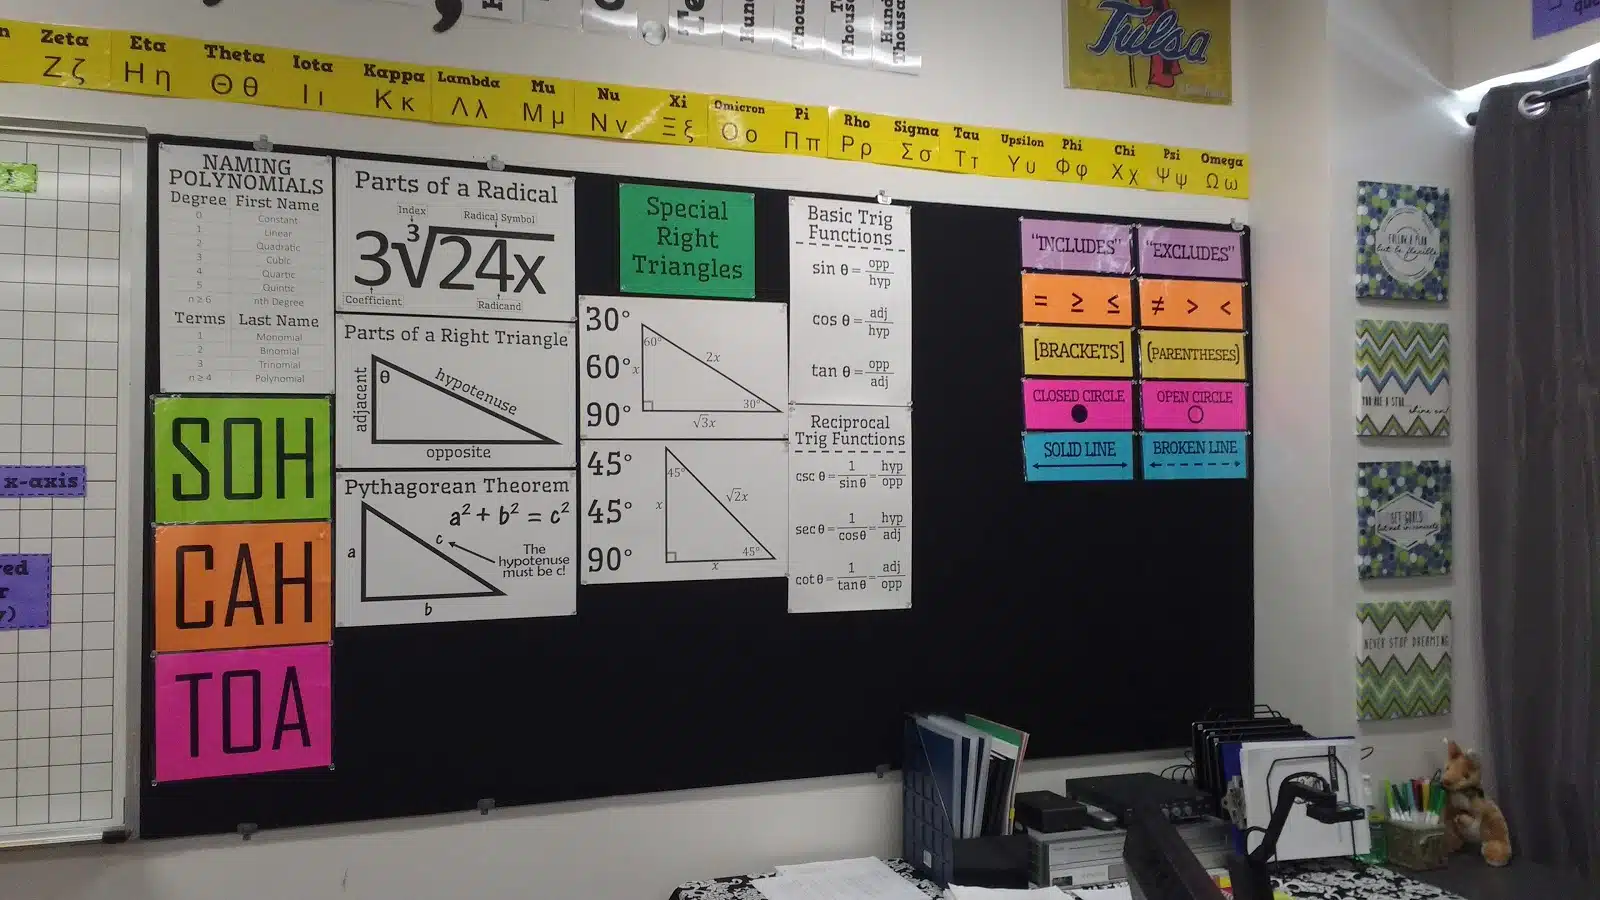 Zeta Eta Theta Iota Kappa Lambda Mu Nu Xi Omicron Pi Rho Sigma Tau Upsilon Phi Chi Psi Omega
Ζζ Ηη Θθ Ιι Κκ Λλ Μμ Νν Ξξ Οο Ππ Ρρ Σσ Ττ Υυ Φφ Χχ Ψψ Ωω
Tulsa
x-axis
NAMING
POLYNOMIALS
Degree First Name
0 Constant
1 Linear
2 Quadratic
3 Cubic
4 Quartic
5 Quintic
n ≥ 6 nth Degree
Terms Last Name
1 Monomial
2 Binomial
3 Trinomial
n ≥ 4 Polynomial
SOH
CAH
TOA
Parts of a Radical
Index
Radical Symbol
3∛24x
Coefficient
Radicand
Parts of a Right Triangle
θ
adjacent
hypotenuse
opposite
Pythagorean Theorem
a² + b² = c²
a
c
The
hypotenuse
must be c!
b
Special
Right
Triangles
30°
60°
90°
60°
x
2x
30°
√3x
45°
45°
90°
45°
x
√2x
45°
x
Basic Trig
Functions
sin θ = opp/hyp
cos θ = adj/hyp
tan θ = opp/adj
Reciprocal
Trig Functions
csc θ = 1/sin θ = hyp/opp
sec θ = 1/cos θ = hyp/adj
cot θ = 1/tan θ = adj/opp
"INCLUDES" "EXCLUDES"
= ≥ ≤ ≠ > <
[BRACKETS] (PARENTHESES)
CLOSED CIRCLE OPEN CIRCLE
SOLID LINE BROKEN LINE
FOLLOW A PLAN
but be flexible
YOU ARE A STAR
shine on!
SET GOALS
but not in concrete
NEVER STOP DREAMING